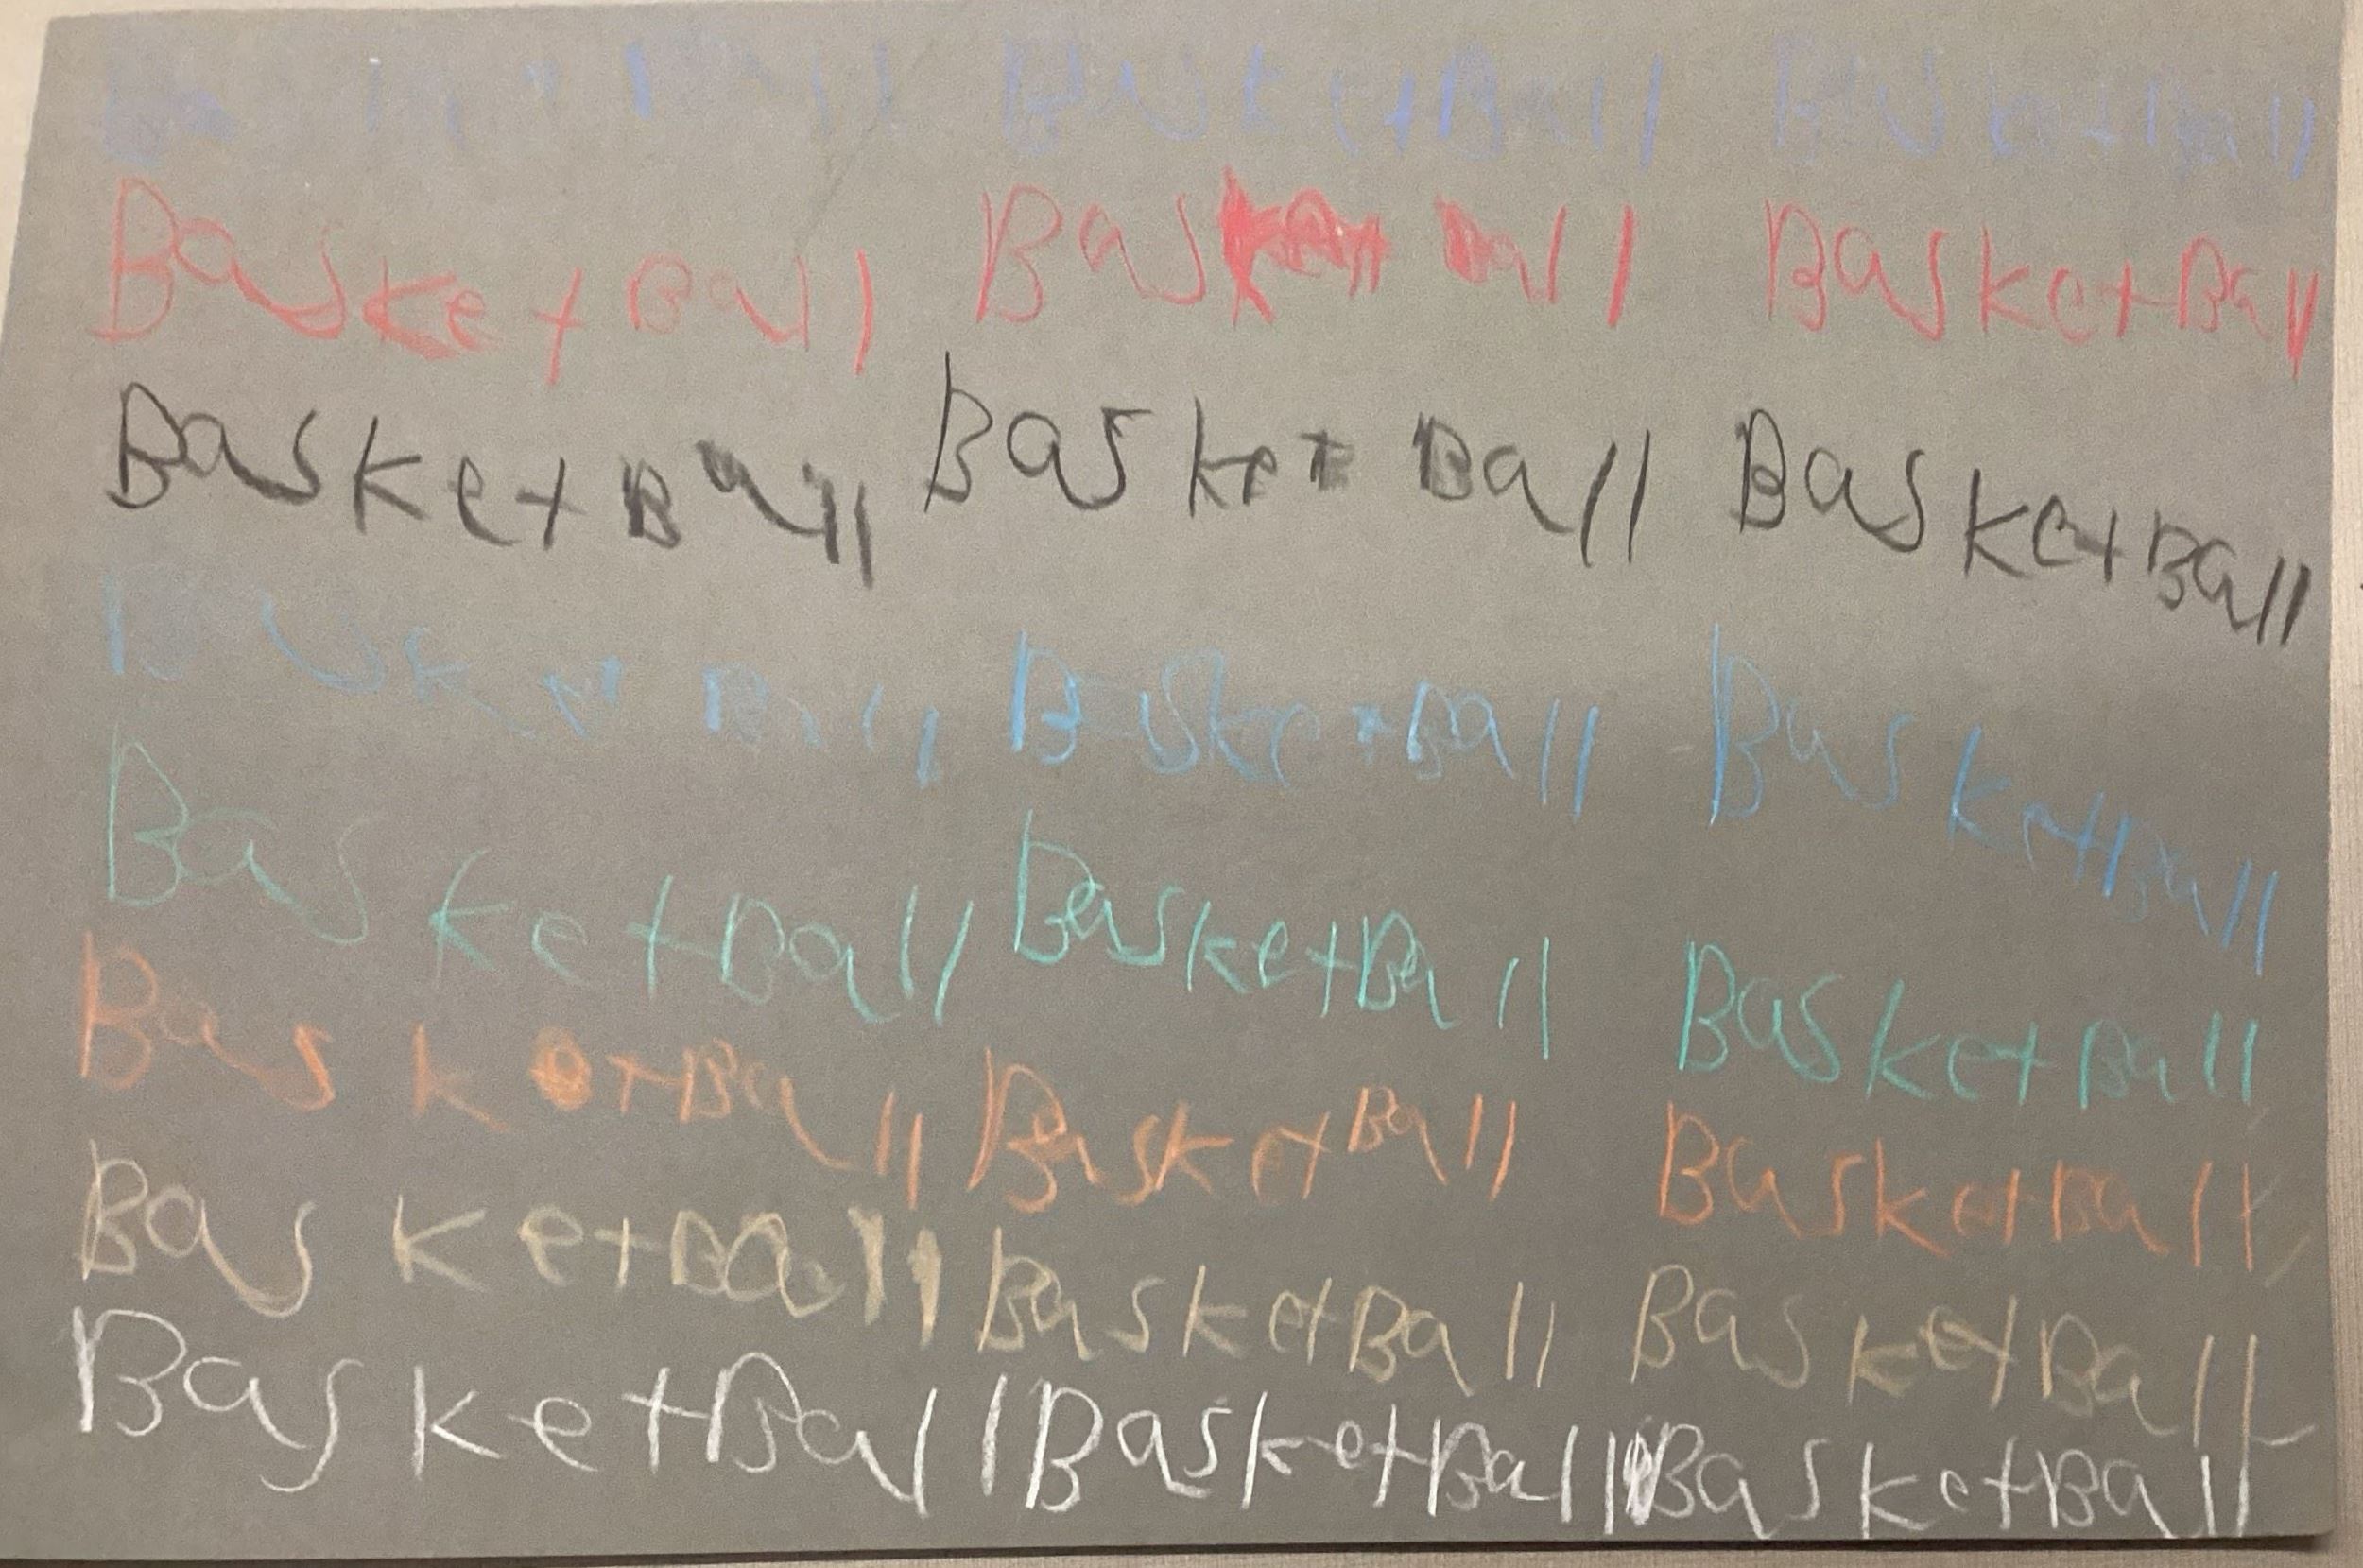 BasketBall BasketBall BasketBall
Basket Ball Basket Ball BasketBall
Basket Ball Basket Ball BasketBall
Basket Ball BasketBall BasketBall
BasketBall BasketBall BasketBall
BasketBall BasketBall BasketBall
BasketBall BasketBall BasketBall
BasketBall BasketBall BasketBall